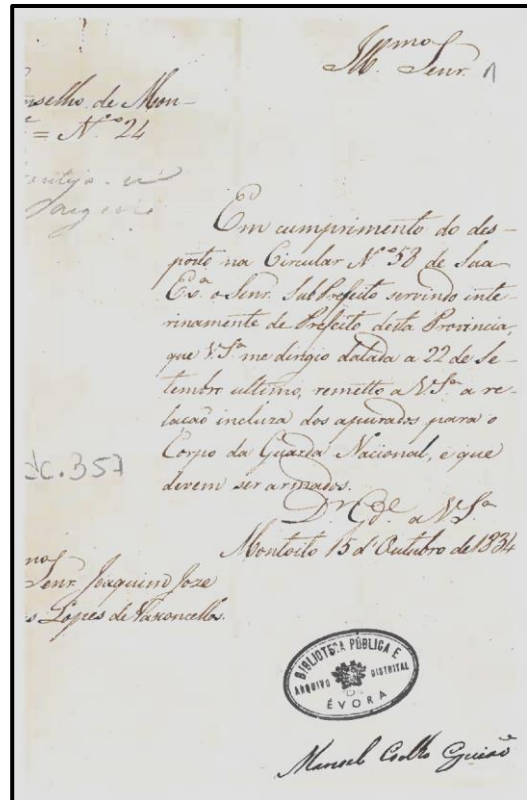 Ill.mo Senr. 1
nselho de Mon-
= N.º 24
Em cumprimento do des-
posto na Circular Nº 58 de Sua
Ex.ª o Senr. SubPrefeito servindo inte-
rinamente de Prefeito desta Provincia,
que V.S.ª me dirigio datada a 22 de Se-
tembro ultimo, remetto a V.S.ª a re-
lacaõ incluza dos apurados para o
Corpo da Guarda Nacional, e que
devem ser armados.
D.s G.de a V.S.ª
Montoito 15 d'Outubro de 1834
c. 357
Senr. Joaquim Joze
Lopes de Vasconcellos.
BIBLIOTECA PÚBLICA E
ARQUIVO DISTRITAL
DE
ÉVORA
Manoel Coelho